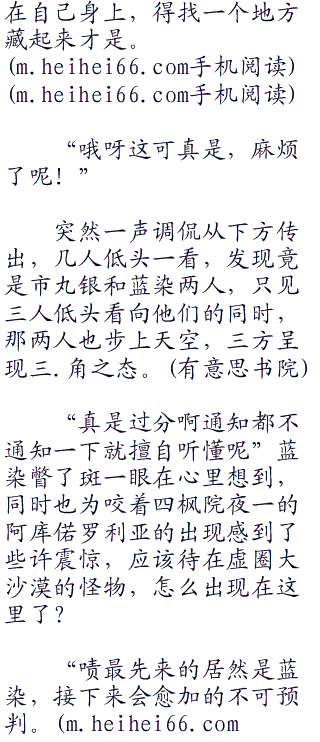 在自己身上，得找一个地方
藏起来才是。
(m.heihei66.com手机阅读)
(m.heihei66.com手机阅读)
“哦呀这可真是，麻烦
了呢！”
突然一声调侃从下方传
出，几人低头一看，发现竟
是市丸银和蓝染两人，只见
三人低头看向他们的同时，
那两人也步上天空，三方呈
现三.角之态。(有意思书院)
“真是过分啊通知都不
通知一下就擅自听懂呢”蓝
染瞥了斑一眼在心里想到，
同时也为咬着四枫院夜一的
阿库偌罗利亚的出现感到了
些许震惊，应该待在虚圈大
沙漠的怪物，怎么出现在这
里了？
“啧最先来的居然是蓝
染，接下来会愈加的不可预
判。(m.heihei66.com